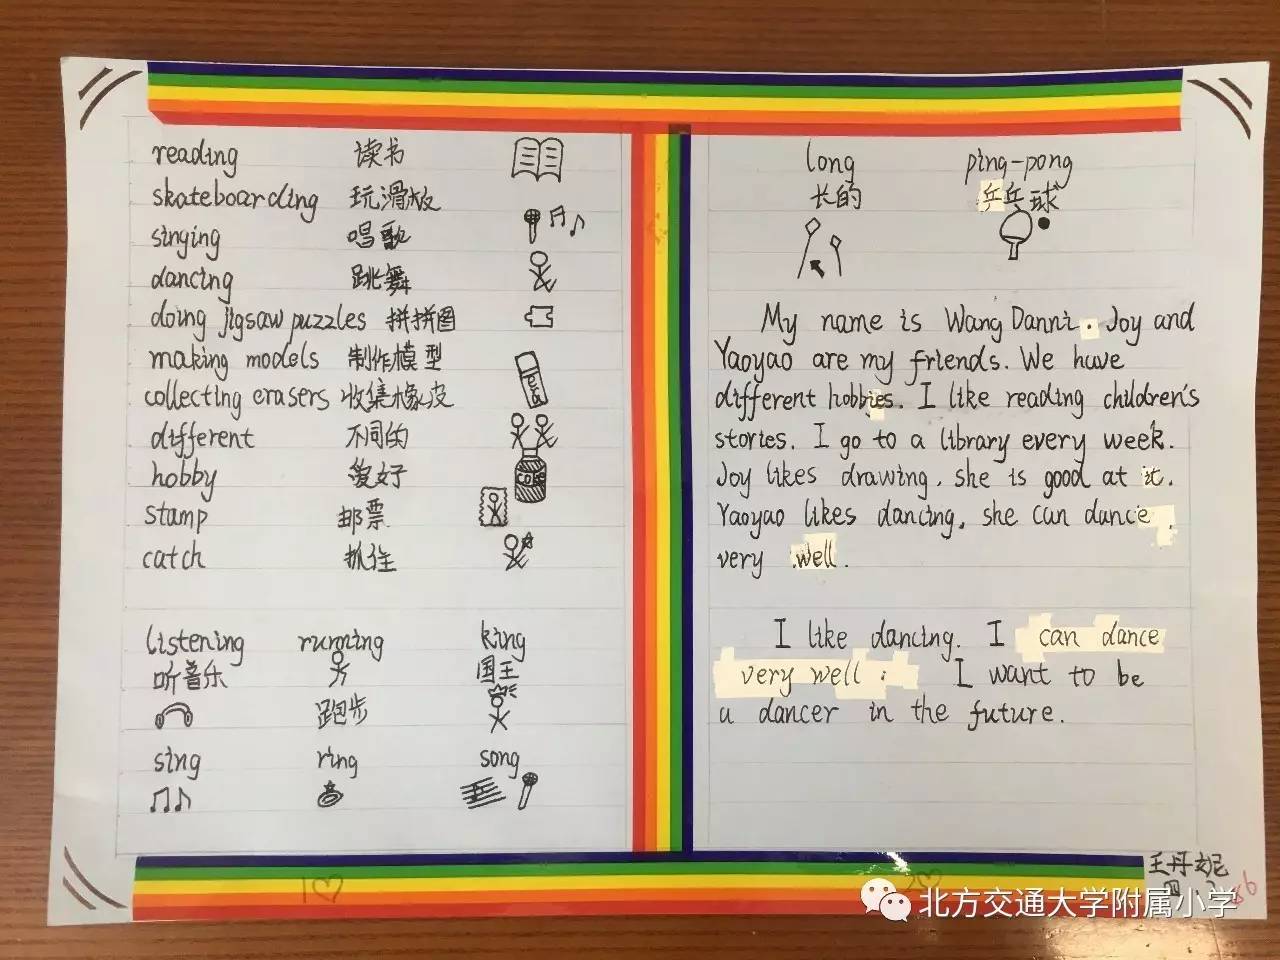 reading 读书
skateboarding 玩滑板
singing 唱歌
dancing 跳舞
doing jigsaw puzzles 拼拼图
making models 制作模型
collecting erasers 收集橡皮
different 不同的
hobby 爱好
stamp 邮票
catch 抓住
listening running king
听音乐 国王
跑步
sing ring song
long ping-pong
长的 乒乓球
My name is Wang Danni. Joy and
Yaoyao are my friends. We have
different hobbies. I like reading children's
stories. I go to a library every week.
Joy likes drawing, she is good at it.
Yaoyao likes dancing, she can dance
very well.
I like dancing. I can dance
very well. I want to be
a dancer in the future.
王丹妮
北方交通大学附属小学